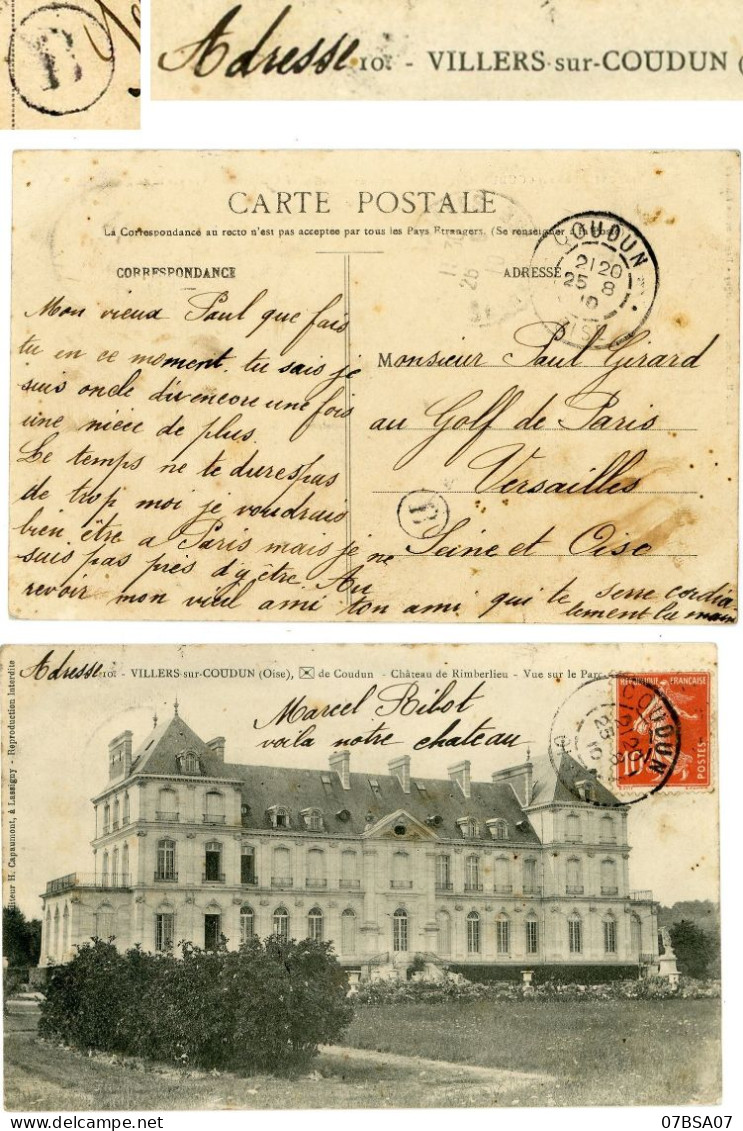 R
Adresse 10. - VILLERS-sur-COUDUN (
CARTE POSTALE
La Correspondance au recto n'est pas acceptee par tous les Pays Etrangers. (Se renseigner
CORRESPONDANCE
ADRESSE
COUDUN
21 20
25 8
10
OISE
Mon vieux Paul que fais
tu en ce moment. tu sais je
suis oncle d'u encore une fois
une niece de plus.
Le temps ne te dure s pas
de trop moi je voudrais
bien être a Paris mais je ne
suis pas près d'y être. Au
revoir mon vieil ami ton ami qui te serre cordia
lement la main
Monsieur Paul Girard
au Golf de Paris
Versailles
Seine et Oise
Adresse 10. - VILLERS-sur-COUDUN (Oise), ✉ de Coudun - Château de Rimberlieu - Vue sur le Parc
Marcel Ribot
voila notre chateau
REPUBLIQUE FRANÇAISE
10
POSTES
COUDUN
Editeur H. Capaumont, à Lassigny - Reproduction Interdite
07BSA07